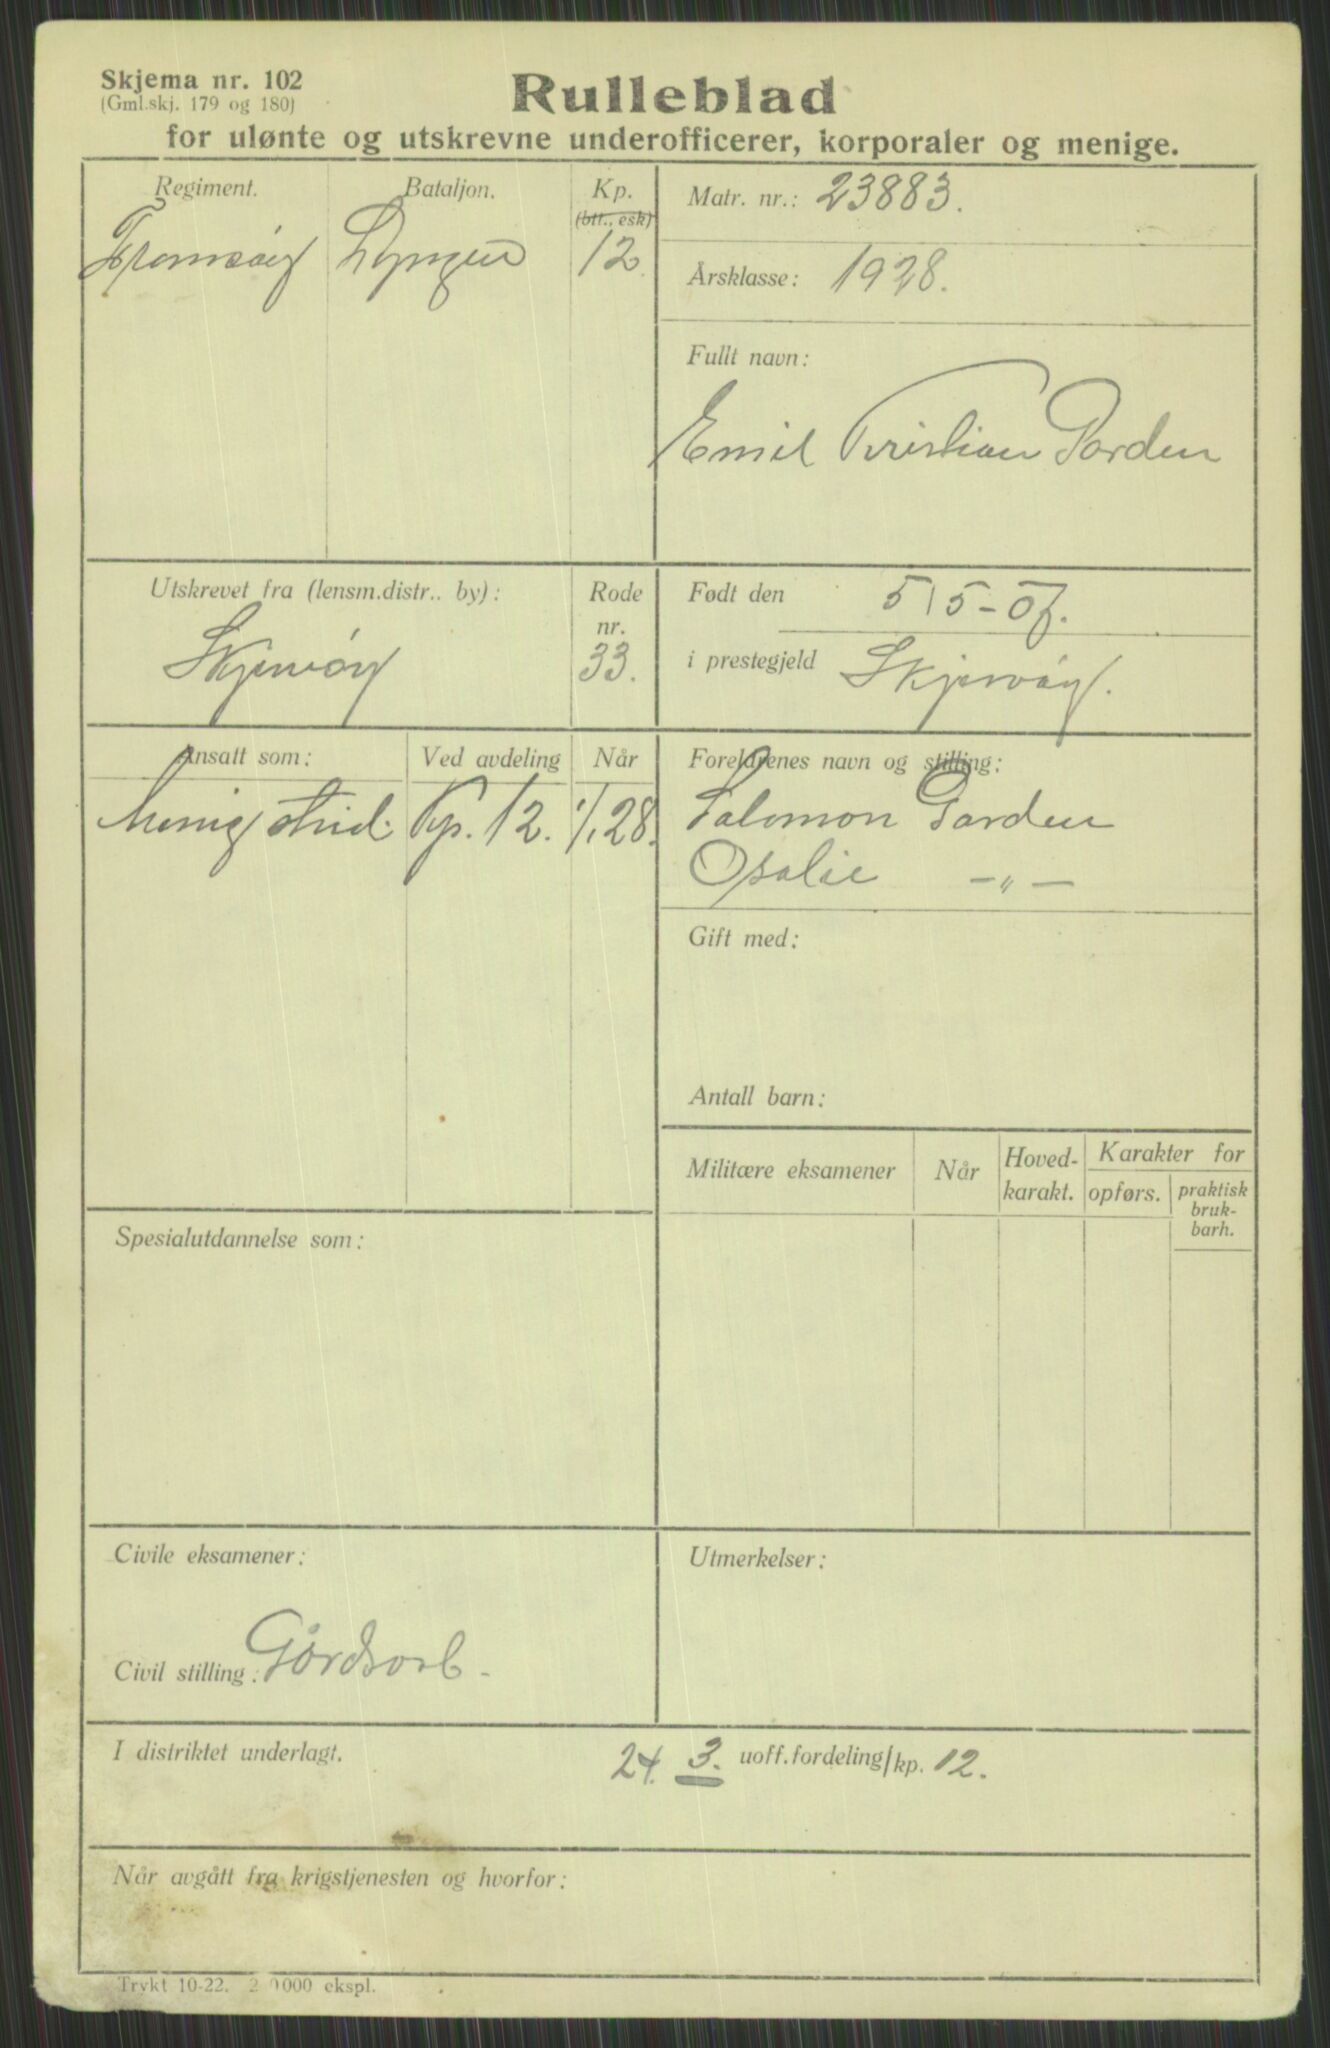 Skjema nr. 102
(Gml.skj. 179 og 180)
Rulleblad
for ulønte og utskrevne underofficerer, korporaler og menige.
Regiment.
Bataljon.
Kp.
(btt., esk)
Tromsøy
Lyngen
12.
Matr. nr.: 23883.
Årsklasse: 1928.
Fullt navn:
Emil Kristian Garden
Utskrevet fra (lensm.distr.. by):
Skjervøy
Rode
nr.
33.
Født den 5/5-07.
i prestegjeld Skjervøy.
Ansatt som:
Ved avdeling
Når
Menig strid.
Kp. 12.
1/1 28.
Foreldrenes navn og stilling:
Salomon Garden
Osalie -"-
Gift med:
Antall barn:
Militære eksamener
Når
Hoved-
karakt.
Karakter for
opførs.
praktisk
bruk-
barh.
Spesialutdannelse som:
Civile eksamener:
Civil stilling: Gårdsarb.
Utmerkelser:
I distriktet underlagt. 24. 3. uoff.fordeling/kp. 12.
Når avgått fra krigstjenesten og hvorfor:
Trykt 10-22. 2 0000 ekspl.